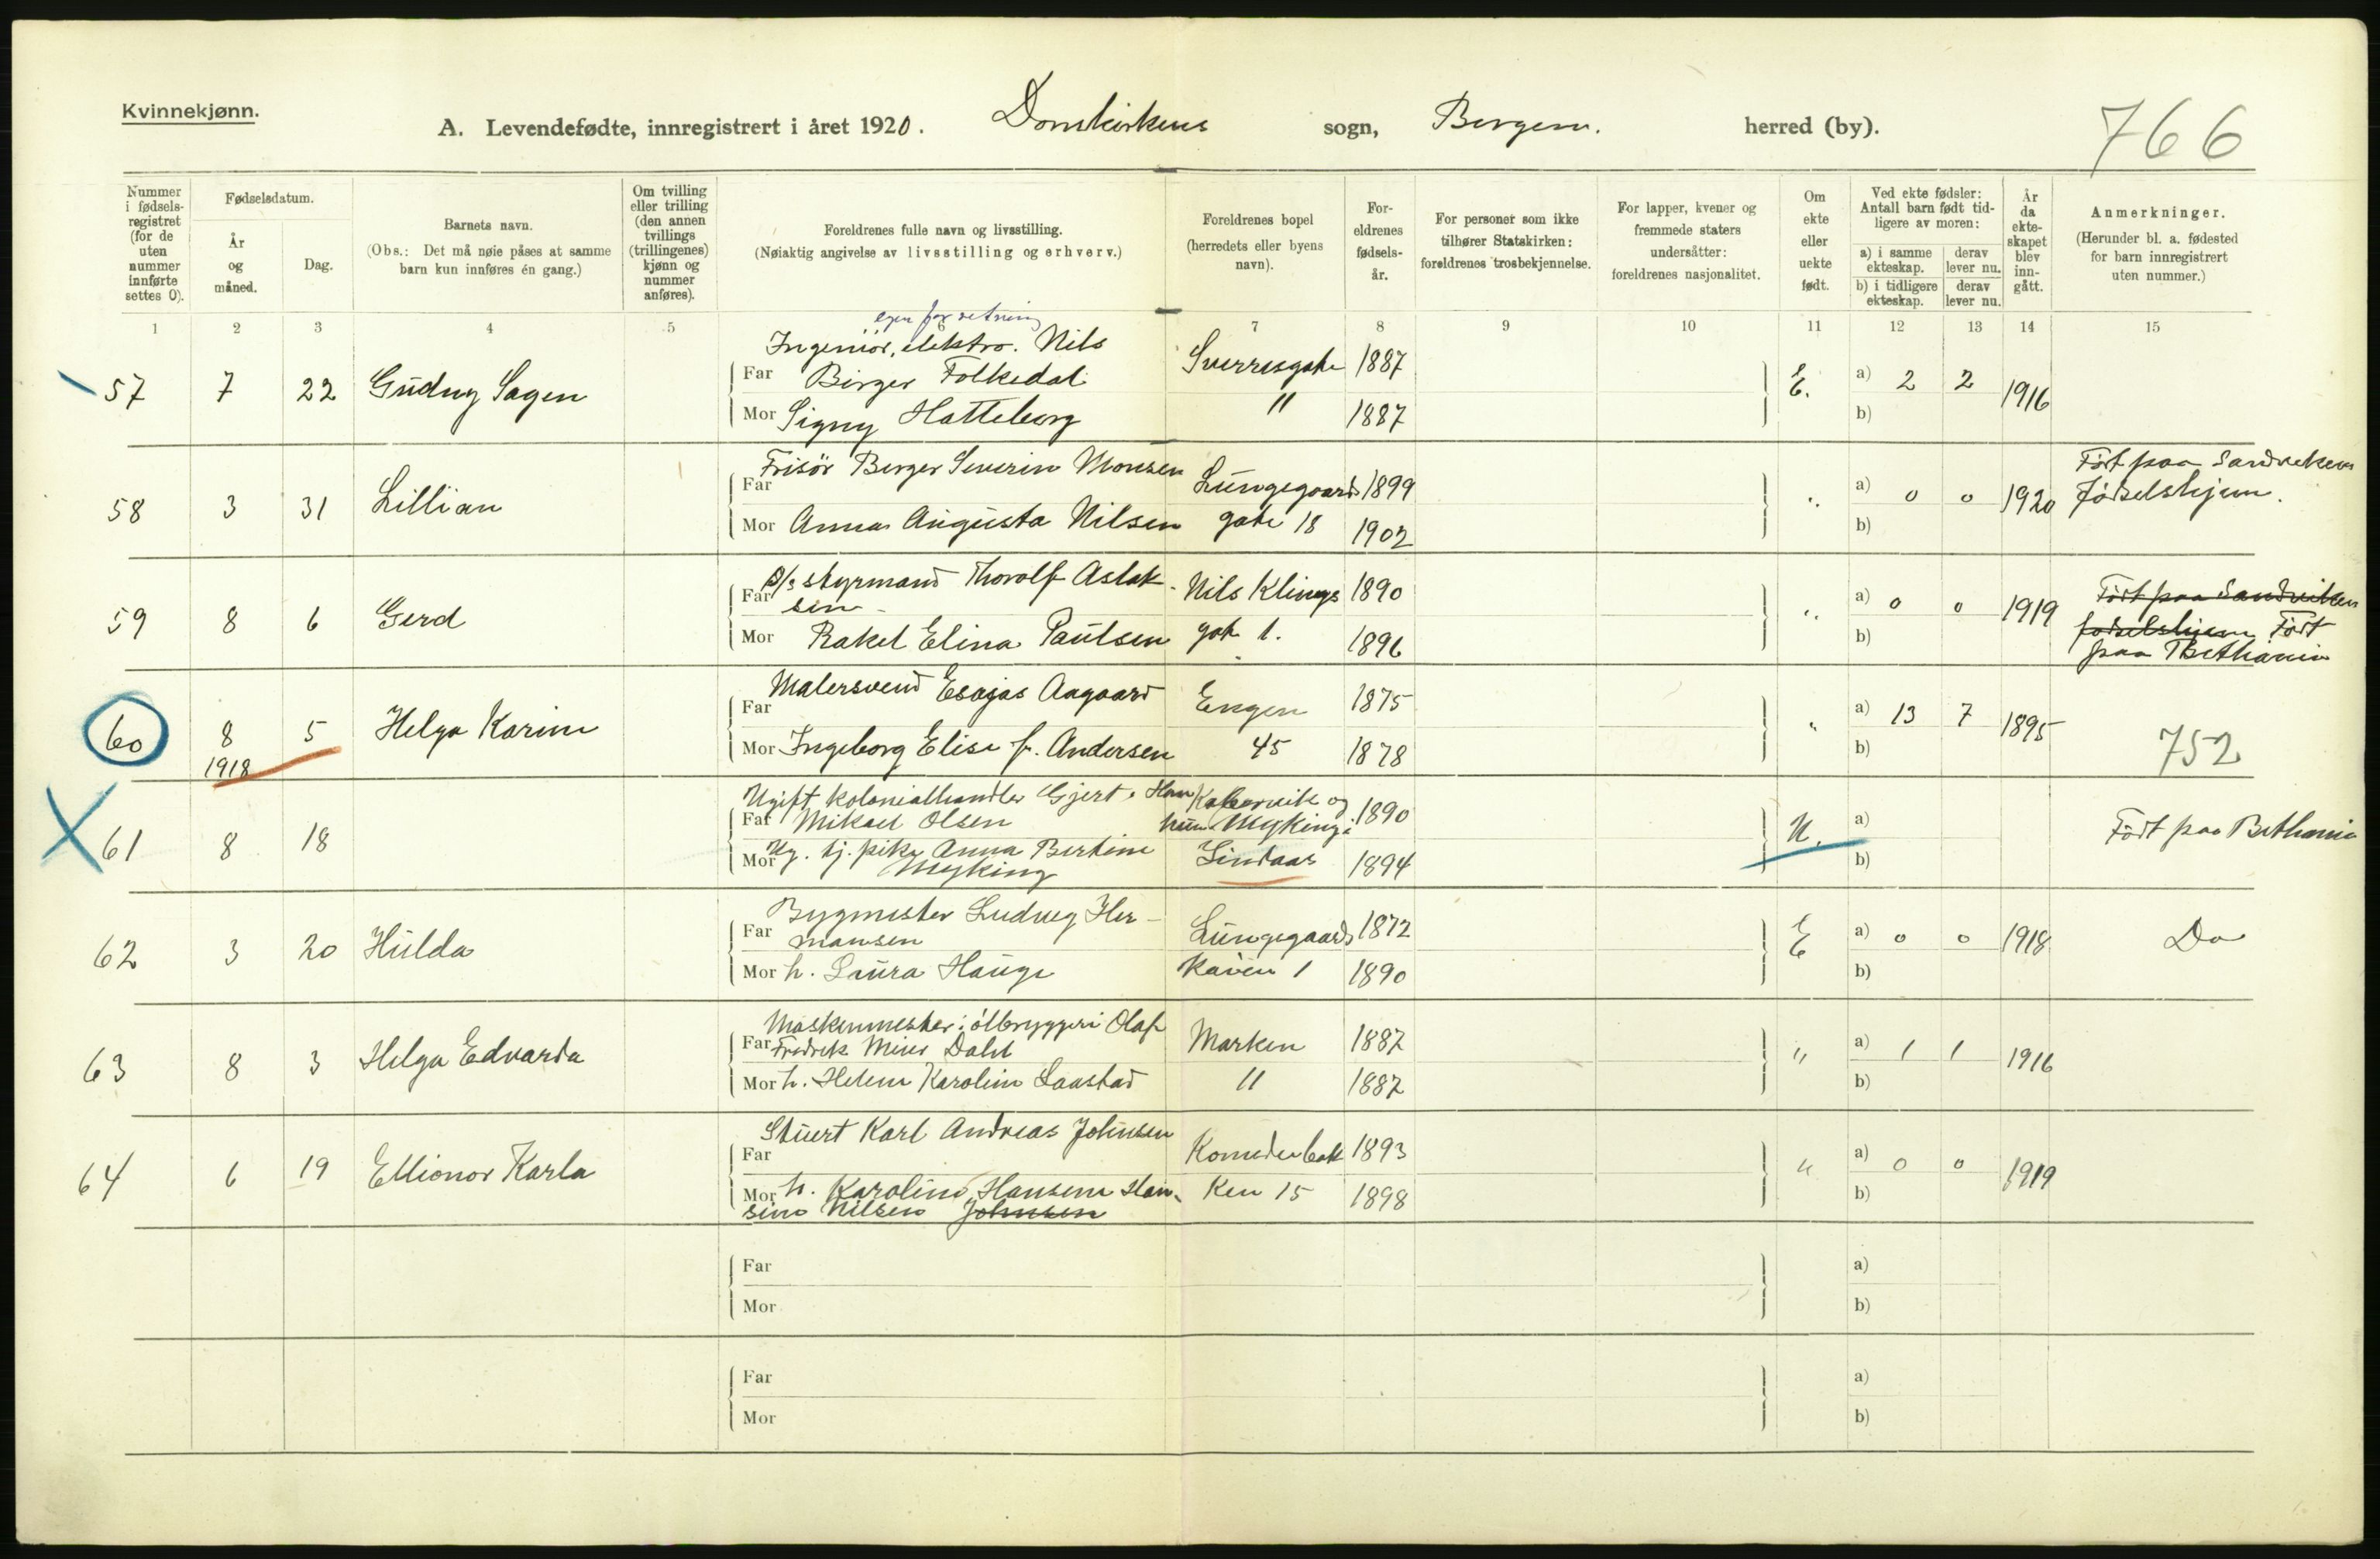 Kvinnekjønn.
A. Levendefødte, innregistrert i året 1920. Domkirkens sogn, Bergen. herred (by).
766
Nummer i fødsels-registret (for de uten nummer innførte settes 0).
Fødselsdatum.
År og måned.
Dag.
Barnets navn.
(Obs.: Det må nøie påses at samme barn kun innføres én gang.)
Om tvilling eller trilling (den annen tvillings (trillingenes) kjønn og nummer anføres).
Foreldrenes fulle navn og livsstilling.
(Nøiaktig angivelse av livsstilling og erhverv.)
Foreldrenes bopel (herredets eller byens navn).
For-eldrenes fødsels-år.
For personer som ikke tilhører Statskirken: foreldrenes trosbekjennelse.
For lapper, kvener og fremmede staters undersåtter: foreldrenes nasjonalitet.
Om ekte eller uekte født.
Ved ekte fødsler: Antall barn født tid-ligere av moren:
a) i samme ekteskap. derav lever nu.
b) i tidligere ekteskap. derav lever nu.
År da ekte-skapet blev inn-gått.
Anmerkninger.
(Herunder bl. a. fødested for barn innregistrert uten nummer.)
1 2 3 4 5 6 7 8 9 10 11 12 13 14 15
egen forretning
Ingeniør, elektro. Nils
57 7 22 Gudny Sagen Far Birger Folkedal Sverresgate 1887 E. a) 2 2 1916
Mor Signy Hatteberg " 1887 b)
Frisör Berger Severin Monsen
58 3 31 Lillian Far Lungegaards 1899 " a) 0 0 1920 Född paa Sandvikens Fødselshjem.
Mor Anna Augusta Nilsen gate 18 1902 b)
59 8 6 Gerd Far D/s styrmand Thorolf Aslak-sen Nils Klings 1890 " a) 0 0 1919 Født paa Sandviken fødselshjem Født paa Bethania
Mor Rakel Elina Paulsen gate 1. 1896 b)
Malersvend Esajas Aagaard
60 8 5 Helga Karine Far Engen 1875 " a) 13 7 1895
1918 Mor Ingeborg Elise f. Andersen 45 1878 b) 752
Ugift kolonialhandler Gjert Han Kopervik og
61 8 18 Far Mikael Olsen hun Myking i 1890 U. a) Født paa Bethania
Mor Ug. tj. pike Anna Bertine Myking Lindaas 1894 b)
Bygmester Ludvig Her-
62 3 20 Hulda Far mansen Lungegaards 1872 E a) 0 0 1918 Do
Mor h. Laura Hauge kaien 1 1890 b)
Maskinmester i ölbryggeri Olaf
63 8 3 Helga Edvarda Far Fredrik Meier Dahl Marken 1882 " a) 1 1 1916
Mor h. Helene Karoline Laastad " 1882 b)
Stuert Karl Andreas Johnsen
64 6 19 Ellionor Karla Far Komediebak 1893 " a) 0 0 1919
Mor h. Karoline Hansine Han-sine Nilsen Johnsen ken 15 1898 b)
Far a)
Mor b)
Far a)
Mor b)